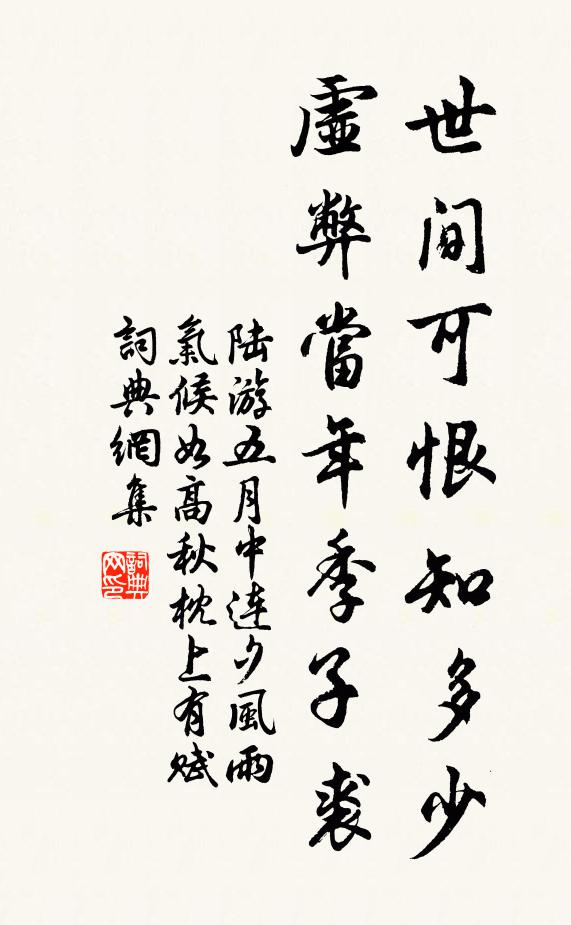 世间可恨知多少
虛弊當年季子裘
陆游五月中連夕風雨
氣候如高秋枕上有赋
詞典網集
詞典
网印